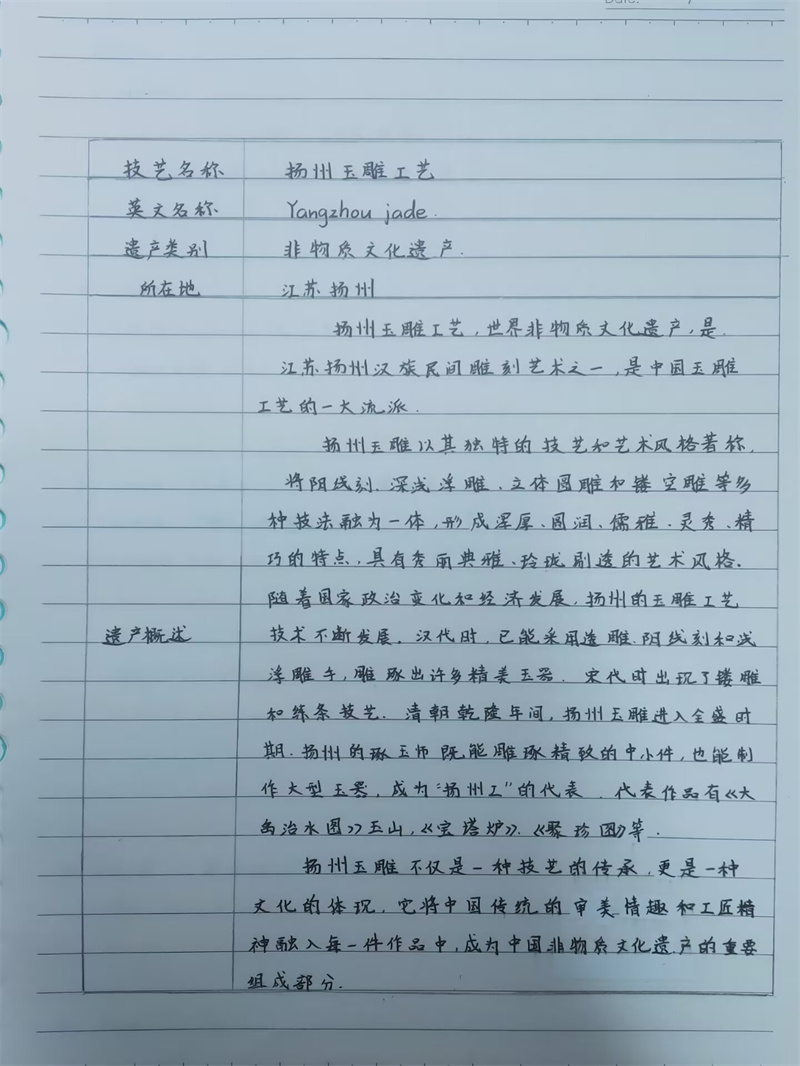 Date:
技艺名称 扬州玉雕工艺
英文名称 Yangzhou jade.
遗产类别 非物质文化遗产.
所在地 江苏扬州
扬州玉雕工艺,世界非物质文化遗产,是
江苏扬州汉族民间雕刻艺术之一,是中国玉雕
工艺的一大流派.
扬州玉雕以其独特的技艺和艺术风格著称,
将阴线刻、深浅浮雕、立体圆雕和镂空雕等多
种技法融为一体,形成浑厚、圆润、儒雅、灵秀、精
巧的特点,具有秀丽典雅、玲珑剔透的艺术风格.
随着国家政治变化和经济发展,扬州的玉雕工艺
遗产概述 技术不断发展.汉代时,已能采用透雕、阴线刻和浅
浮雕等,雕琢出许多精美玉器.宋代时出现了镂雕
和练条技艺.清朝乾隆年间,扬州玉雕进入全盛时
期.扬州的琢玉师既能雕琢精致的中小件,也能制
作大型玉器,成为“扬州工”的代表.代表作品有《大
禹治水图》玉山,《宝塔炉》、《聚珍图》等.
扬州玉雕不仅是一种技艺的传承,更是一种
文化的体现,它将中国传统的审美情趣和工匠精
神融入每一件作品中,成为中国非物质文化遗产的重要
组成部分.